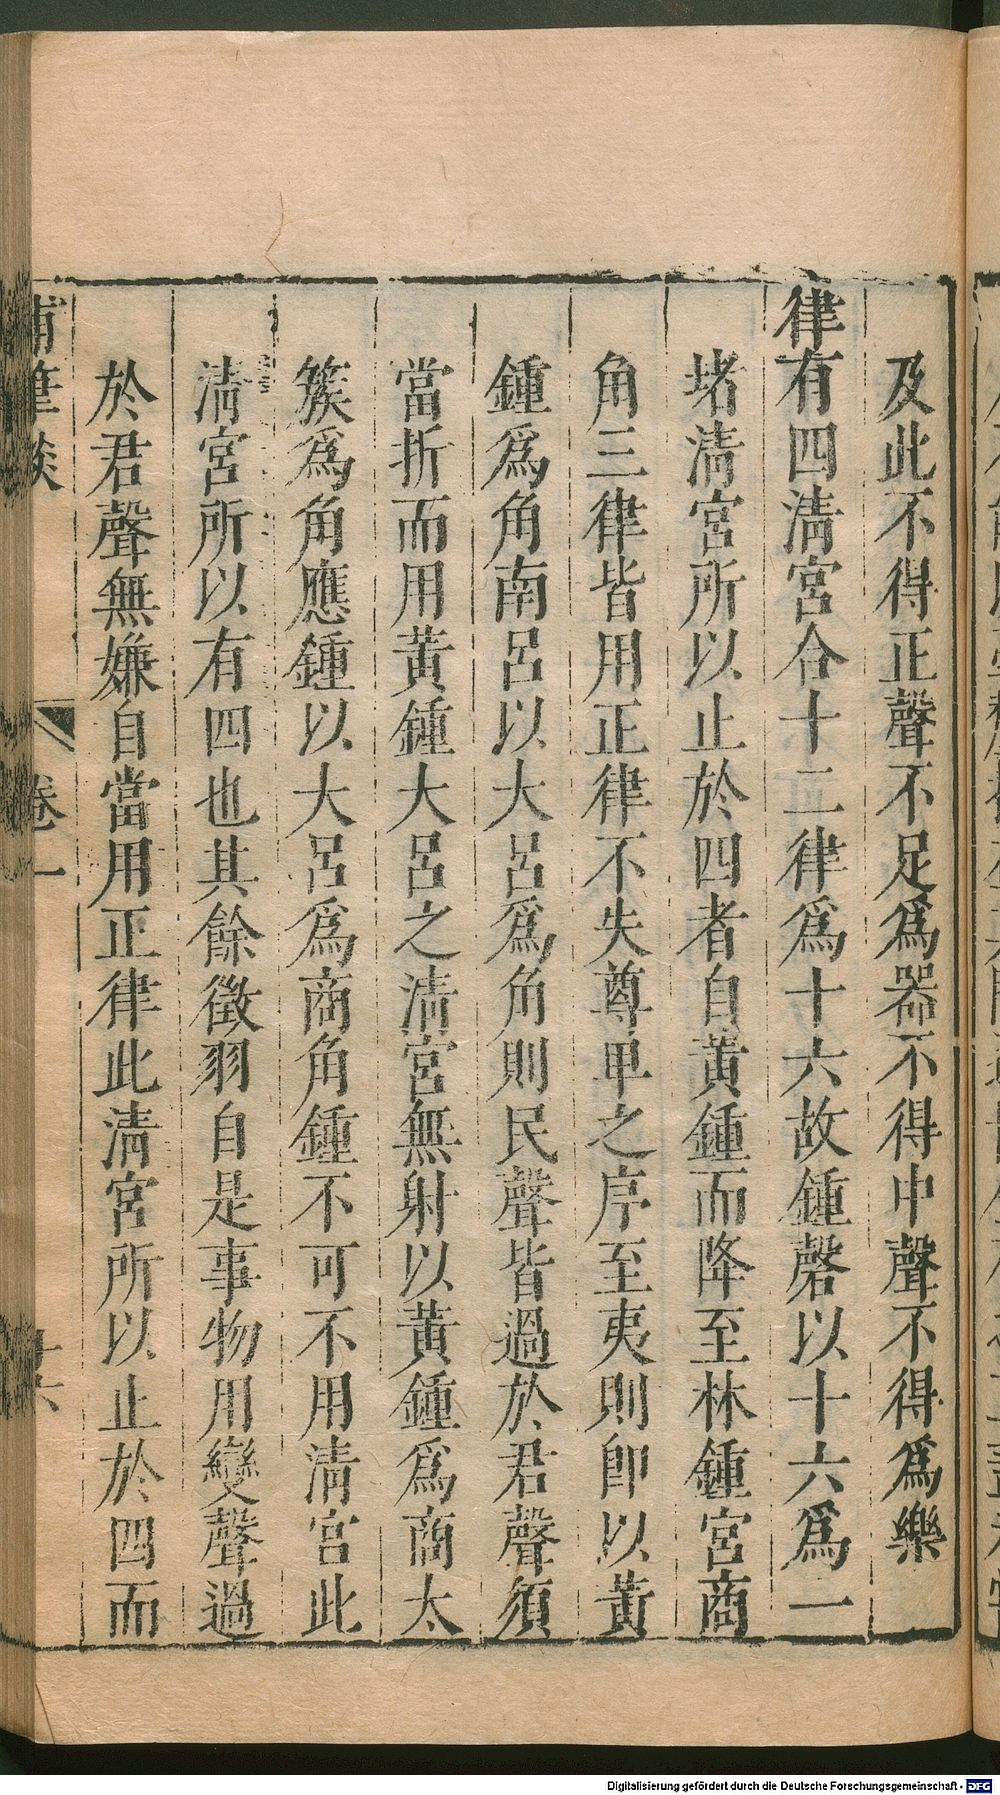 及此不得正聲不足爲器不得中聲不得爲樂
律有四淸宮合十二律爲十六故鍾磬以十六爲一
堵淸宮所以止於四者自黃鍾而降至林鍾宮商
角三律皆用正律不失尊卑之序至夷則卽以黃
鍾爲角南呂以大呂爲角則民聲皆過於君聲須
當折而用黃鍾大呂之淸宮無射以黃鍾爲商太
簇爲角應鍾以大呂爲商角鍾不可不用淸宮此
淸宮所以有四也其餘徵羽自是事物用變聲過
於君聲無嫌自當用正律此淸宮所以止於四而
補筆談 卷一 十六
Digitalisierung gefördert durch die Deutsche Forschungsgemeinschaft - DFG